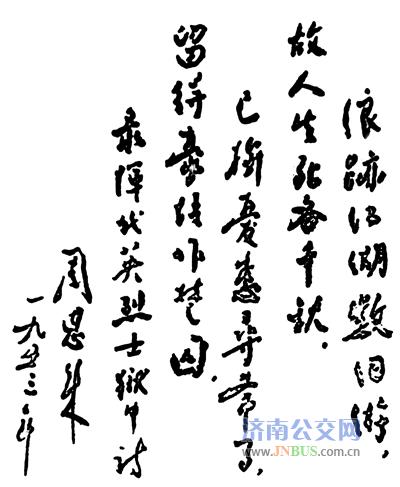 浪跡江湖憶旧游，
故人生死各千秋，
已擯憂患尋常事，
留得豪情作楚囚。
录惲代英烈士獄中詩
周恩来
一九五三年
济南公交网
www.JNBUS.com.cn